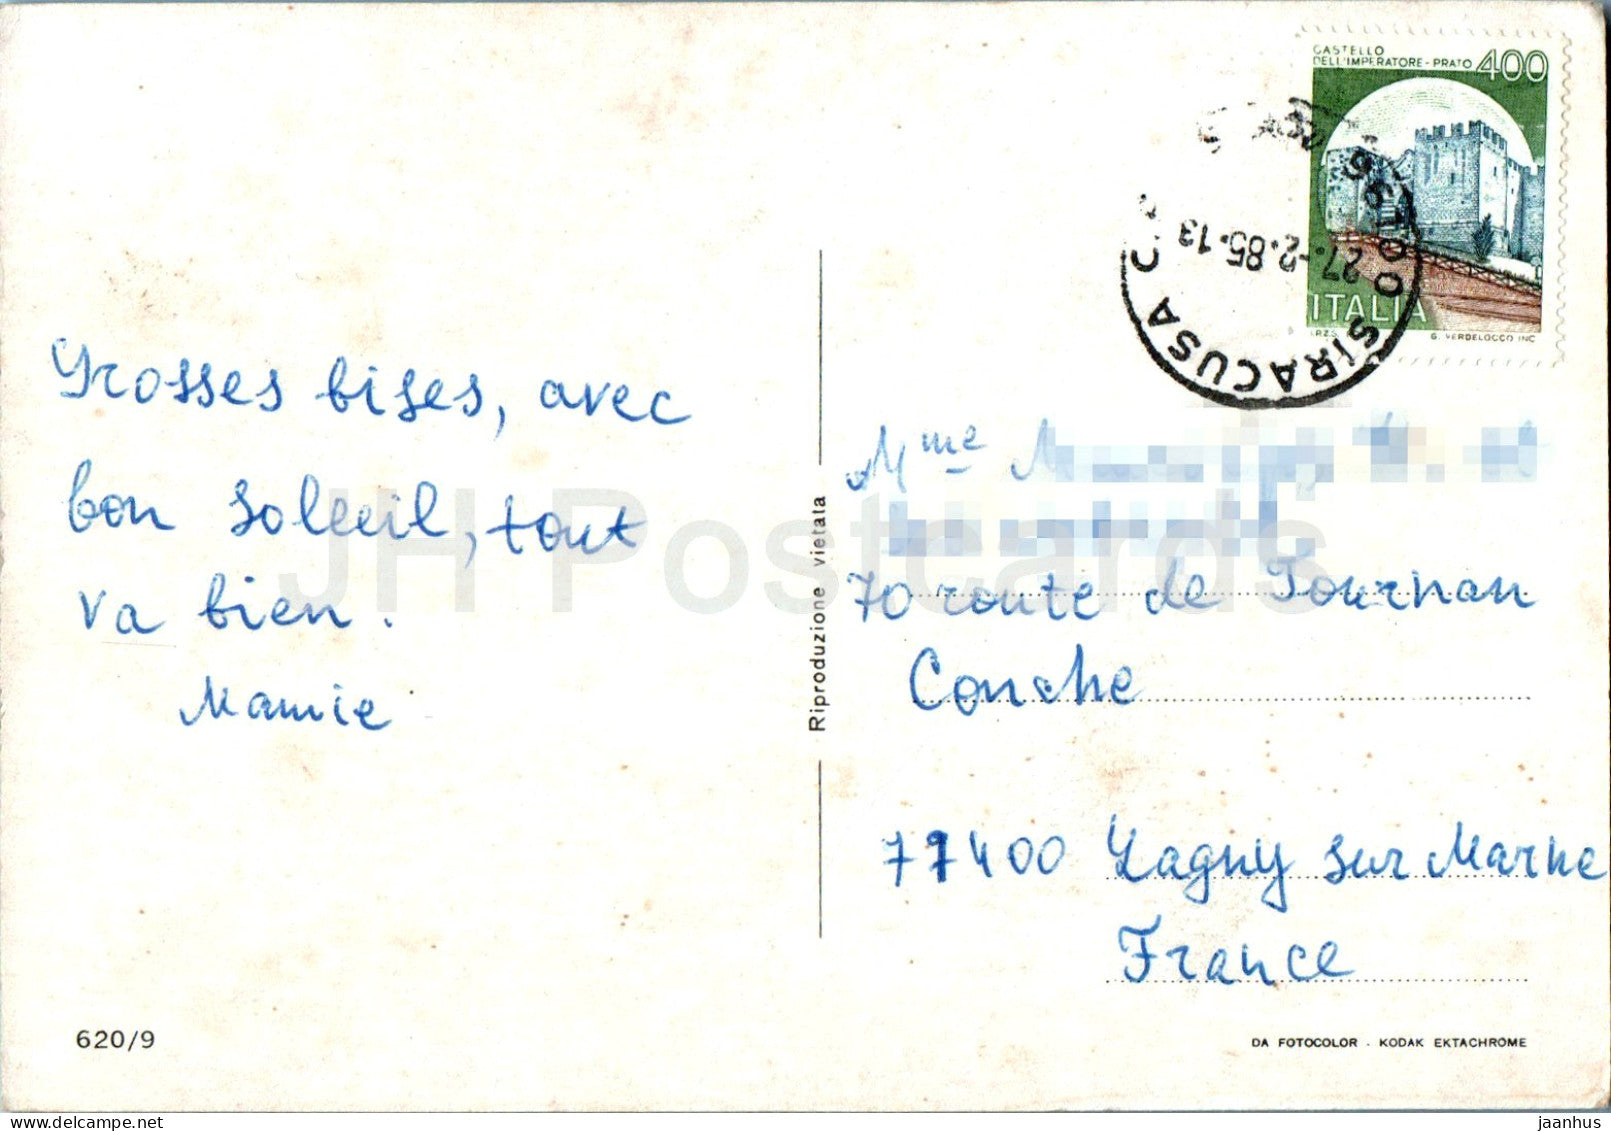 CASTELLO
DELL'IMPERATORE - PRATO 400
96100 SIRACUSA C
27.-2.85.13
ITALIA
G. VERDELOCCO INC
Grosses bises, avec
bon soleil, tout
va bien.
Mamie
Riproduzione vietata
Mme
70 route de Tournan
Conche
77400 Lagny sur Marne
France
620/9
DA FOTOCOLOR - KODAK EKTACHROME
JH Postcards
jaanhus